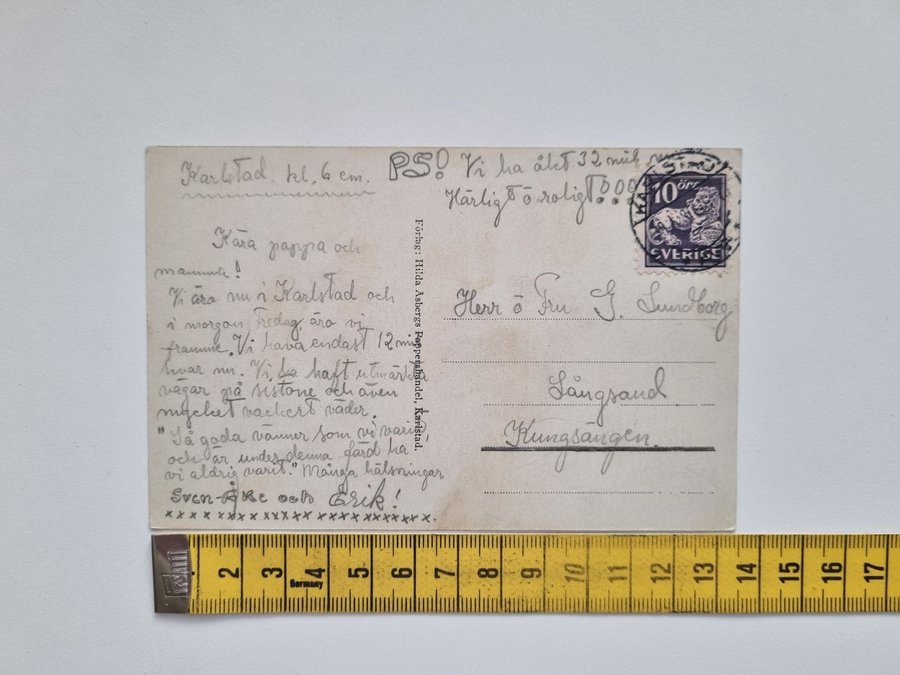 Karlstad. kl. 6 em.
Kära pappa och
mamma!
Vi äro nu i Karlstad och
i morgon, fredag, äro vi
framme. Vi hava endast 12 mil
kvar nu. Vi ha haft utmärkta
vägar på sistone och även
mycket vackert väder.
"Så goda vänner som vi varit
och är under denna färd ha
vi aldrig varit." Många hälsningar
Sven-Åke och Erik!
xxxxxxxxxxxxxxxxxxxxxxxx.
Förlag: Hilda Asbergs Pappershandel, Karlstad.
PS! Vi ha åkt 32 mil
Härligt o roligt!
10 ÖRE
SVERIGE
Herr o Fru G. Lundborg
Långsand
Kungsängen.
2 3 4 5 6 7 8 9 10 11 12 13 14 15 16 17
Germany